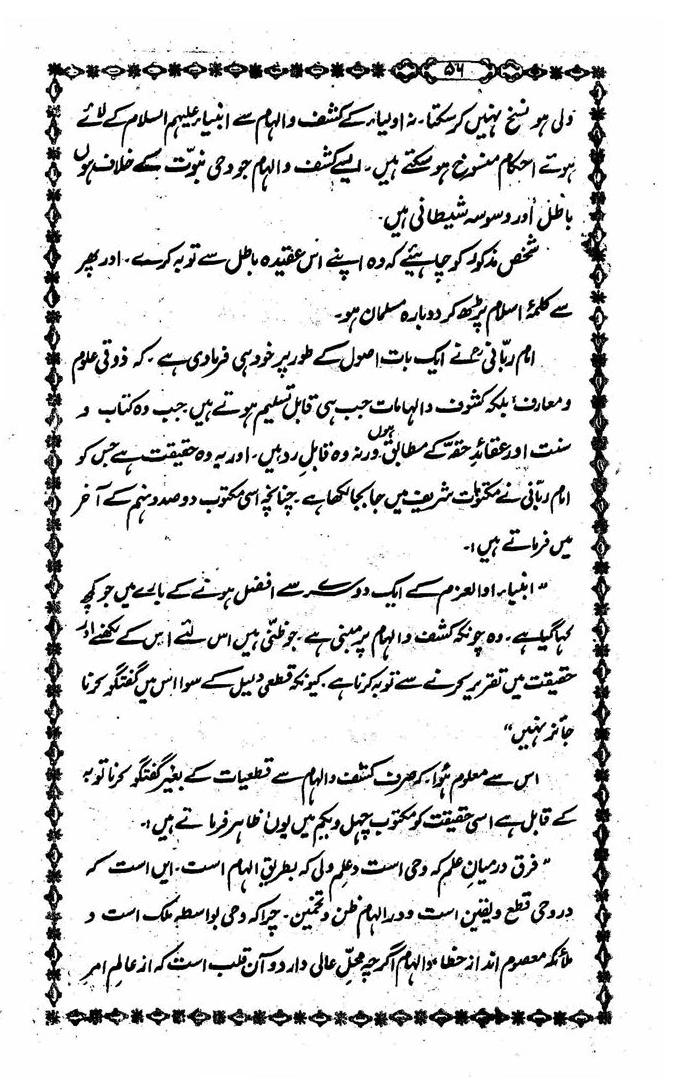 ۵۶
ولی ہو نسخ نہیں کرسکتا۔ نہ اولیاء کے کشف والہام سے انبیاء علیہم السلام کے لائے
ہوئے احکام منسوخ ہوسکتے ہیں۔ ایسے کشف والہام جو وحی نبوّت کے خلاف ہوں
باطل اور وسوسہ شیطانی ہیں۔
شخص مذکور کو چاہیئے کہ وہ اپنے اس عقیدہ باطل سے توبہ کرے۔ اور پھر
سے کلمۂ اسلام پڑھ کر دوبارہ مسلمان ہو۔
امام ربّانی رحؒ نے ایک بات اصول کے طور پر خود ہی فرمادی ہے۔ کہ ذوقی علوم
و معارف بلکہ کشوف والہامات جب ہی قابل تسلیم ہوتے ہیں جب وہ کتاب و
سنت اور عقائدِ حقہ کے مطابق ہوں ورنہ وہ قابل رد ہیں۔ اور یہ وہ حقیقت ہے جس کو
امام ربّانی نے مکتوبات شریف میں جابجا لکھا ہے۔ چنانچہ اسی مکتوب دوصد و نہم کے آخر
میں فرماتے ہیں:۔
"انبیاء اوالعزم کے ایک دوسرے سے افضل ہونے کے بارے میں جو کچھ
کہا گیا ہے۔ وہ چونکہ کشف والہام پر مبنی ہے۔ جو ظنّی ہیں اس لئے اس کے لکھنے اور
حقیقت میں تقریر کرنے سے توبہ کرنا ہے۔ کیونکہ قطعی دلیل کے سوا اس میں گفتگو کرنا
جائز نہیں"
اس سے معلوم ہوا۔ کہ صرف کشف والہام سے قطعیات کے بغیر گفتگو کرنا توبہ
کے قابل ہے اسی حقیقت کو مکتوب چہل ویکم میں یوں ظاہر فرماتے ہیں:۔
"فرق درمیان علم کہ وحی است و علم ولی کہ بطریق الہام است۔ ایں است کہ
در وحی قطع ویقین است و در الہام ظن وتخمین۔ چرا کہ وحی بواسطہ ملک است و
ملائکہ معصوم اند از خطا والہام اگرچہ محلّ عالی دارد و آن قلب است کہ از عالم امر